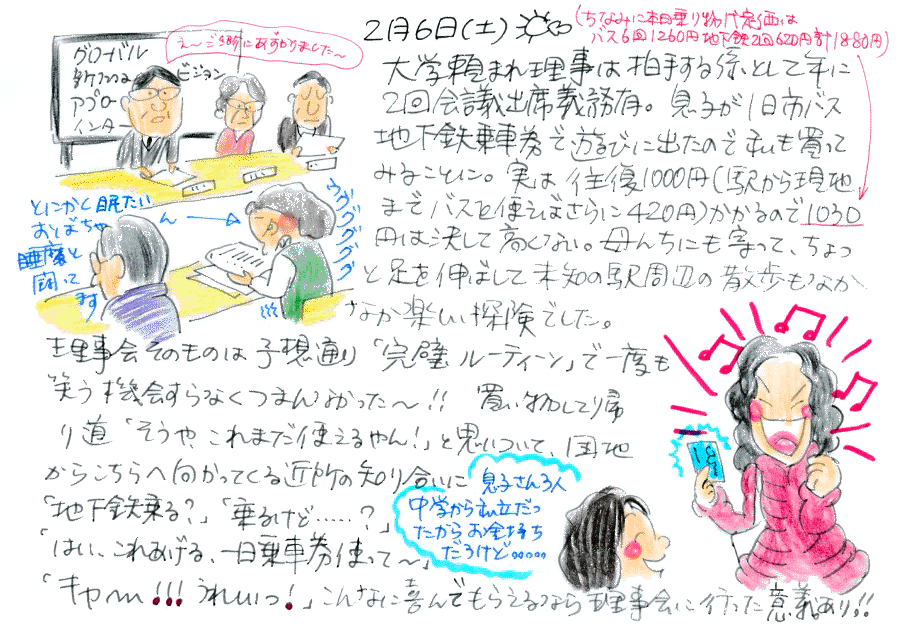 2月6日(土)
(ちなみに本日乗り物代定価は
バス6回1260円地下鉄2回620円計1880円)
グローバル
ビジョン
アプロー
インター
え〜ご紹介にあずかりました〜
大学頼まれ理事は拍手する係として年に
2回会議出席義務有。息子が1日市バス
地下鉄乗車券で遊びに出たので私も買って
みることに。実は往復1000円(駅から現地
までバスを使えばさらに420円)かかるので1030
円は決して高くない。母んちにも寄って、ちょっ
と足を伸ばして未知の駅周辺の散歩もなか
なか楽しい探険でした。
とにかく眠たい
おとばちゃ
ん
睡魔と
闘って
ます
グググググ
理事会そのものは予想通り「完璧ルーティーン」で一度も
笑う機会すらなくつまんなかった〜!! 買い物して帰
り道「そうや、これまだ使えるやん!」と思いついて、団地
からこちらへ向かってくる近所の知り合いに
「地下鉄乗る?」「乗るけど……?」
「はい、これあげる、一日乗車券使って〜」
「キャ〜!!!うれしいっ!」こんなに喜んでもらえるなら理事会に行った意義あり!!
息子さん3人
中学から私立だっ
たからお金持ち
だろけど……